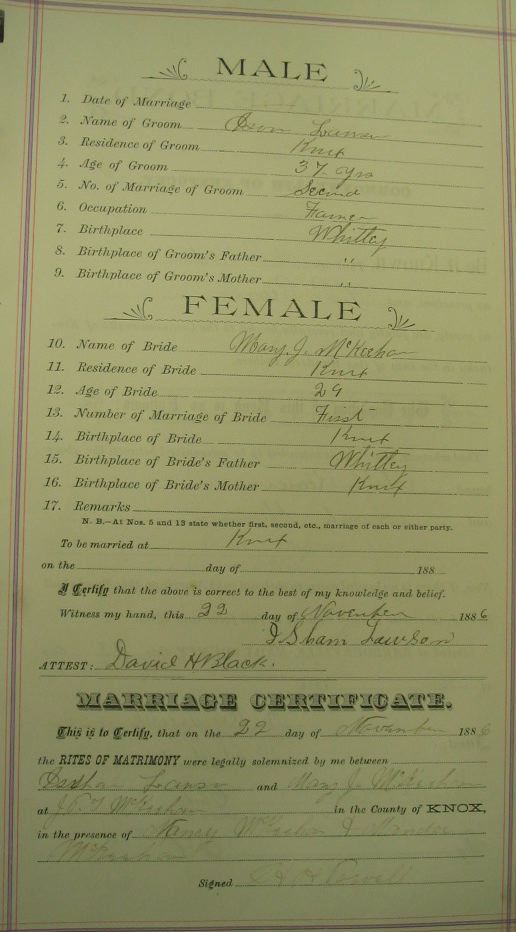 MALE
1. Date of Marriage
2. Name of Groom
3. Residence of Groom Knox
4. Age of Groom 37 yrs
5. No. of Marriage of Groom Second
6. Occupation Farmer
7. Birthplace Whitley
8. Birthplace of Groom's Father "
9. Birthplace of Groom's Mother "
FEMALE
10. Name of Bride Mary. J. McKeehan
11. Residence of Bride Knox
12. Age of Bride 29
13. Number of Marriage of Bride First
14. Birthplace of Bride Knox
15. Birthplace of Bride's Father Whitley
16. Birthplace of Bride's Mother Knox
17. Remarks
N. B.—At Nos. 5 and 13 state whether first, second, etc., marriage of each or either party.
To be married at Knox
on the day of 188
I Certify that the above is correct to the best of my knowledge and belief.
Witness my hand, this 22 day of November 1886
Isham Lawson
ATTEST: David H Black.
MARRIAGE CERTIFICATE.
This is to Certify, that on the 22 day of November 1886
the RITES OF MATRIMONY were legally solemnized by me between
and Mary J McKeehan
at McKeehan in the County of KNOX,
in the presence of Nancy McKeehan &
McKeehan
Signed Powell